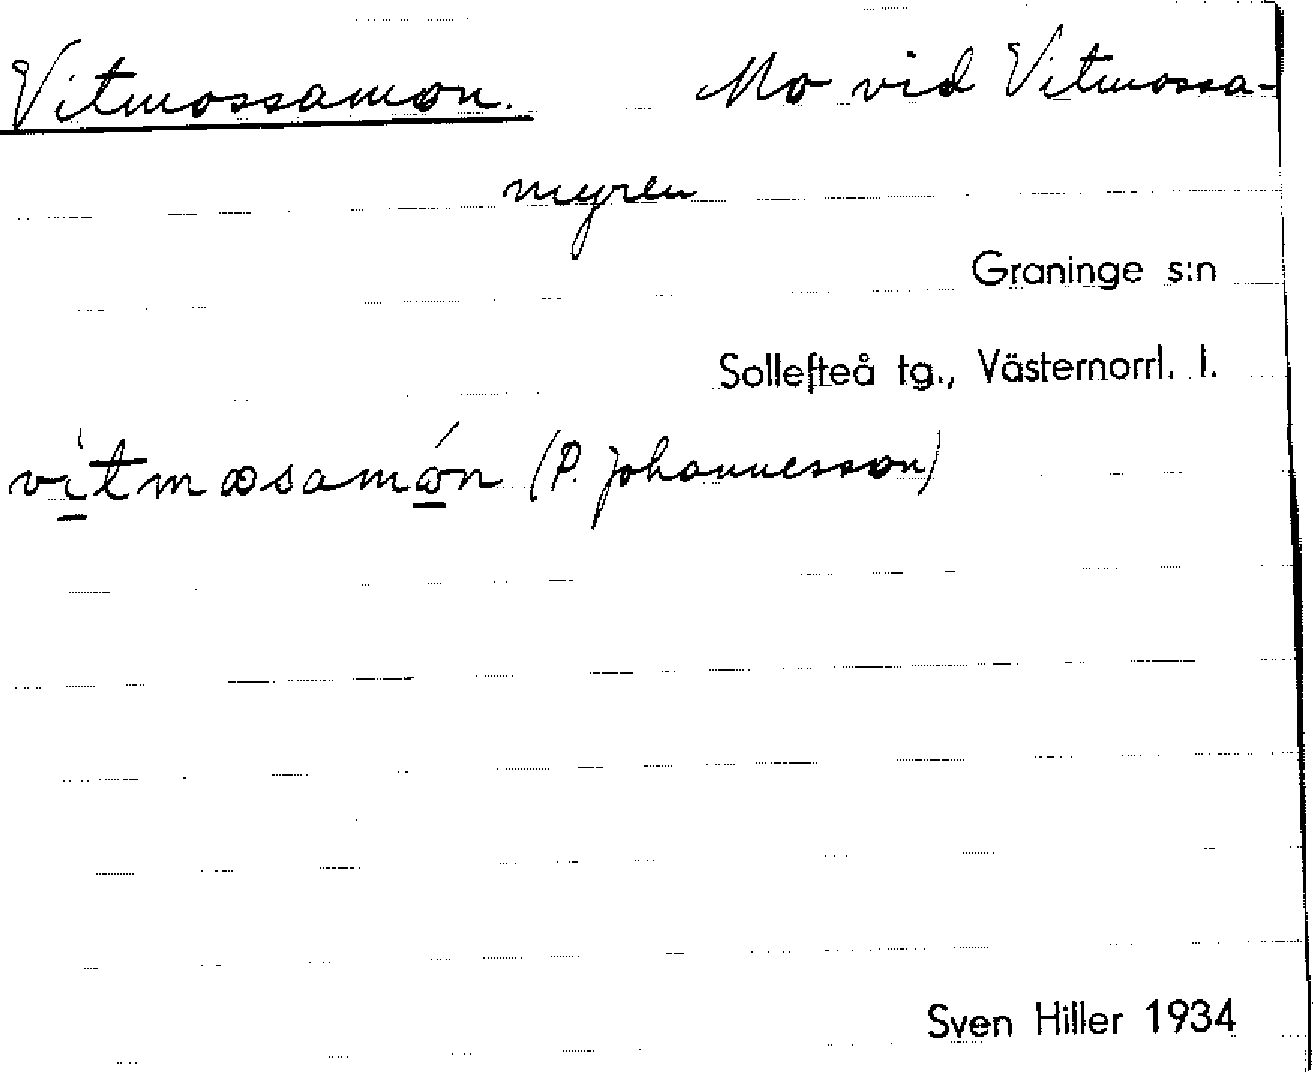 Vitmossamon. Mo vid Vitmossa-
myren
Graninge s:n
Sollefteå tg., Västernorrl. l.
(P. Johannesson)
Sven Hiller 1934